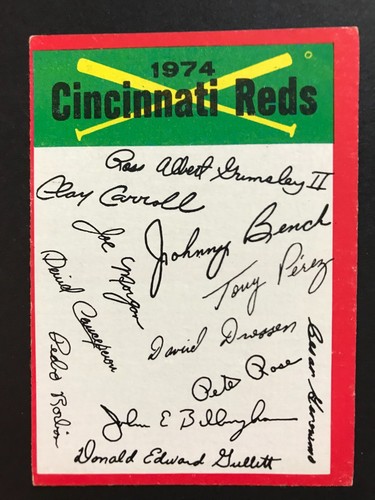 1974
Cincinnati Reds
Ross Albert Grimsley II
Clay Carroll
Joe Morgan
Johnny Bench
Tony Pérez
David Concepcion
David Driessen
Cesar Geronimo
Pete Rose
Pedro Borbon
John E Billingham
Donald Edward Gullett